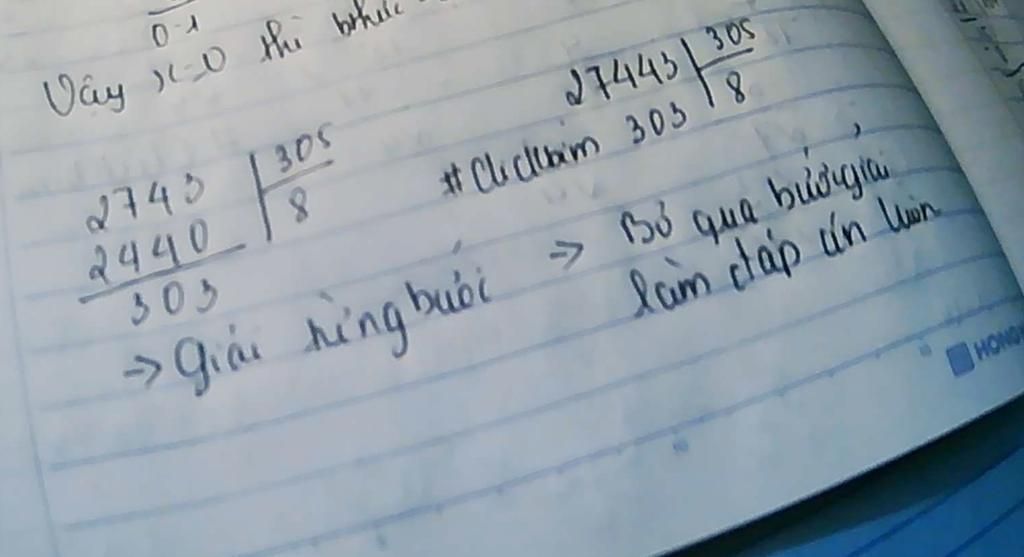 0-1
Vây x=0 thì
2743 | 305
2440 | 8
303
→ Giải từng bước
27443 | 305
303 | 8
→ Bỏ qua bước giải
làm đáp án luôn
HONG